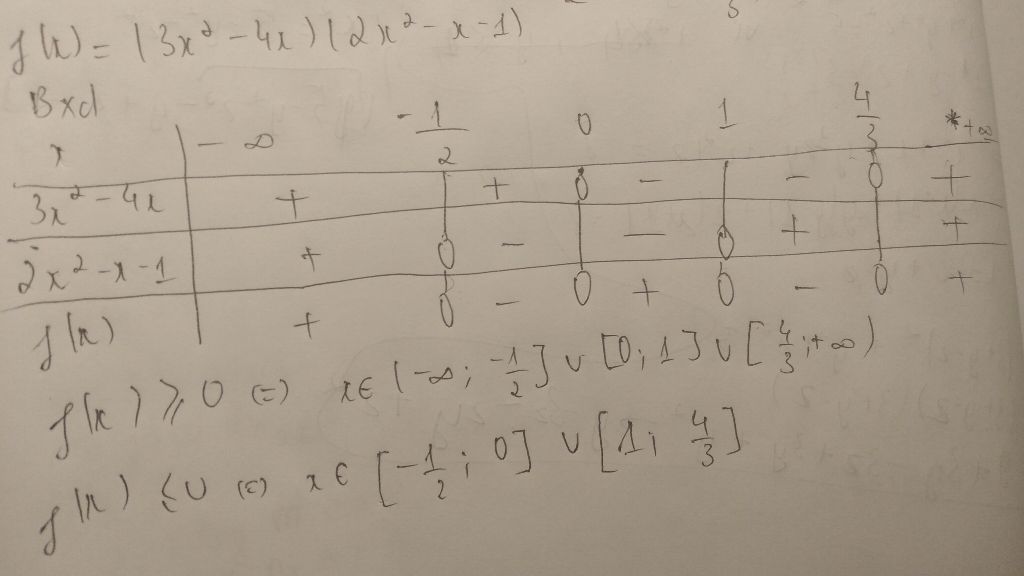 f(x) = (3x² - 4x)(2x² - x - 1)
Bxd
x | -∞ -1/2 0 1 4/3 +∞
3x² - 4x | + | + 0 - | - 0 +
2x² - x - 1 | + 0 - | - 0 + | +
f(x) | + 0 - 0 + 0 - 0 +
f(x) ⩾ 0 (=) x ∈ (-∞; -1/2] ∪ [0; 1] ∪ [4/3; +∞)
f(x) ⩽ 0 (=) x ∈ [-1/2; 0] ∪ [1; 4/3]